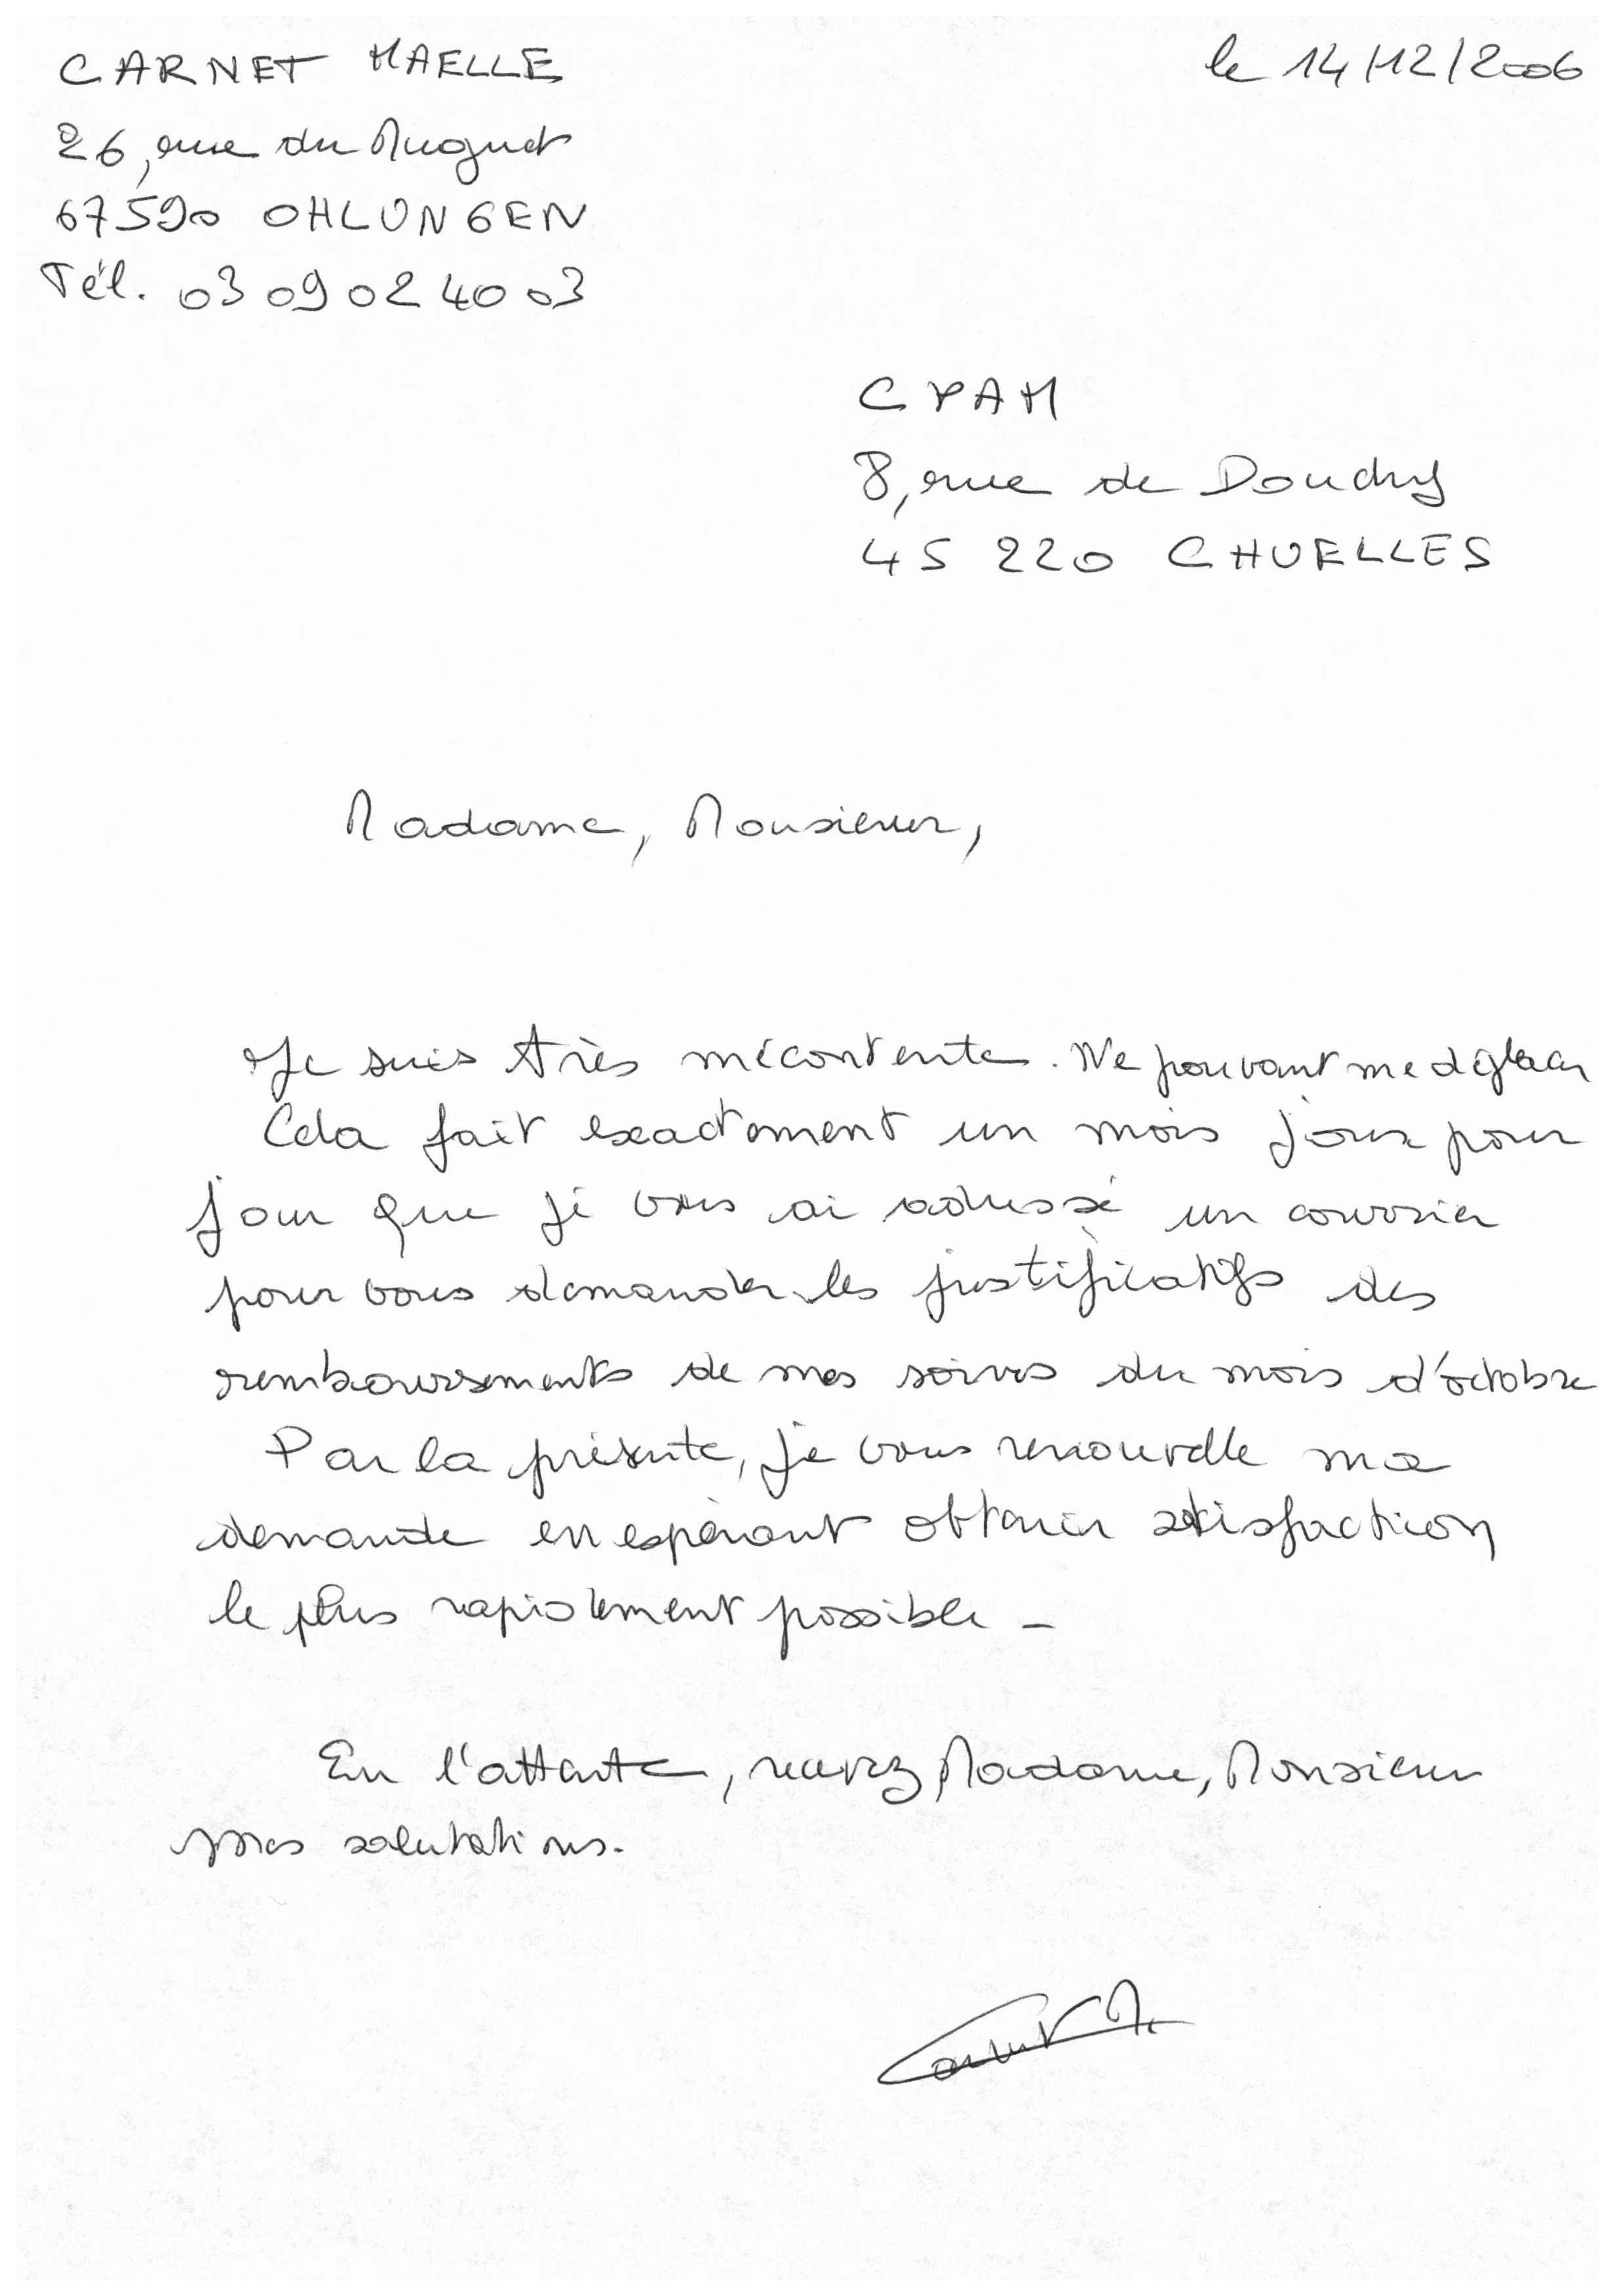 CARNET MAELLE
le 14/12/2006
26, rue du Muguet
67590 OHLUNGEN
Tél. 03 09 02 40 03
CPAM
8, rue de Douchy
45 220 CHUELLES
Madame, Monsieur,
Je suis très mécontente. Ne pouvant me déplacer
Cela fait exactement un mois jour pour
jour que je vous ai adressé un courrier
pour vous demander les justificatifs des
remboursements de mes soins du mois d'octobre
Par la présente, je vous renouvelle ma
demande en espérant obtenir satisfaction
le plus rapidement possible -
En l'attente, recevez Madame, Monsieur
mes salutations.
Carnet M.